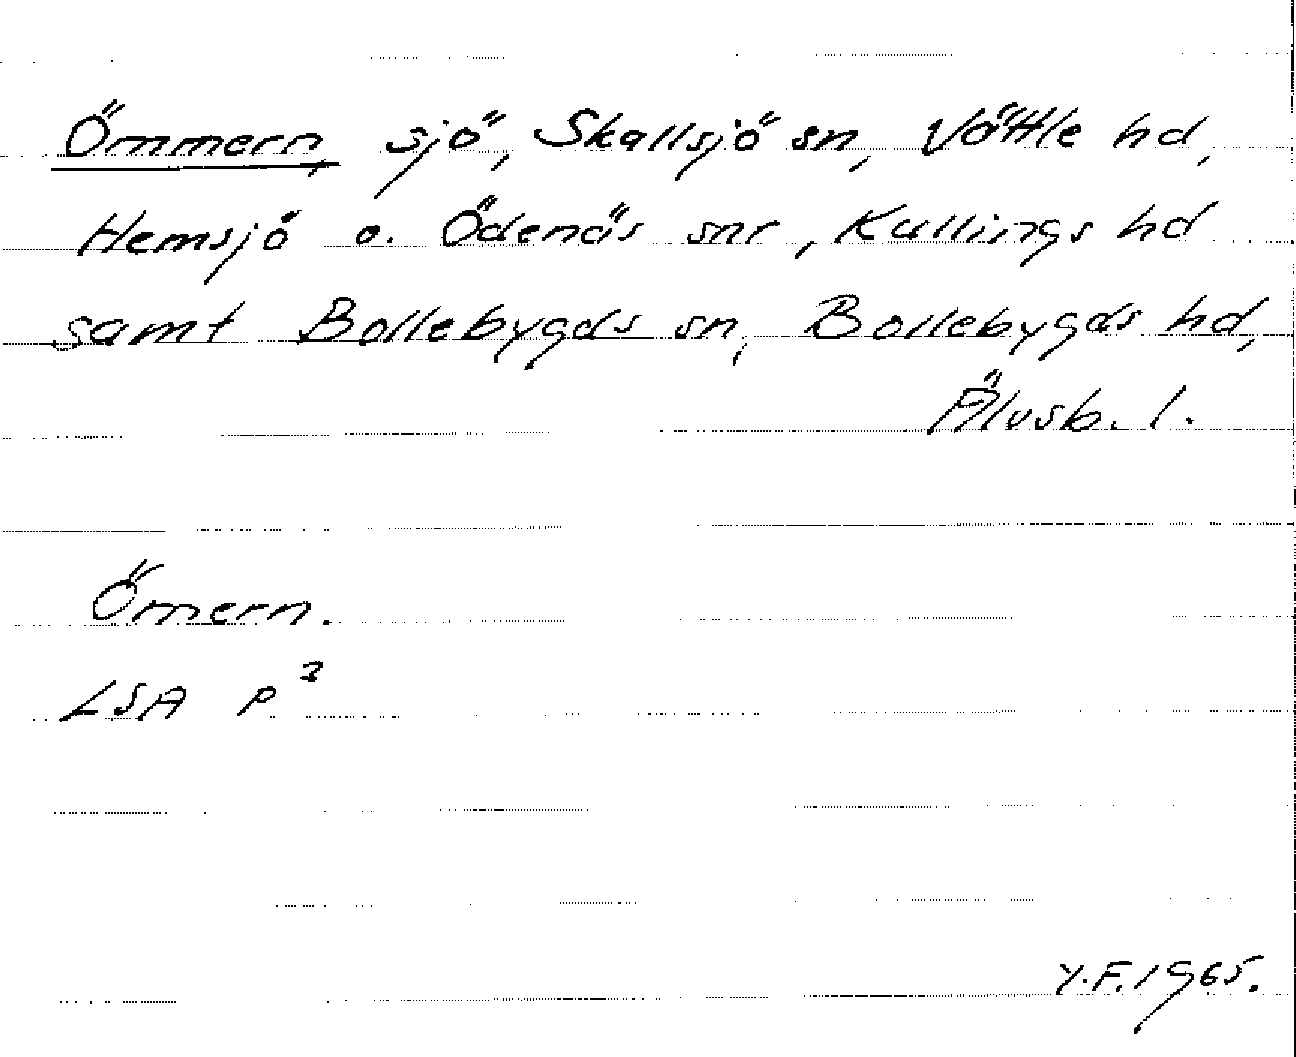 Ömmern, sjö, Skallsjö sn, Vättle hd,
Hemsjö o. Ödenäs snr, Kullings hd
samt Bollebygds sn, Bollebygds hd,
Älvsb. l.
Ömern.
LSA P³
Y.F. 1965.